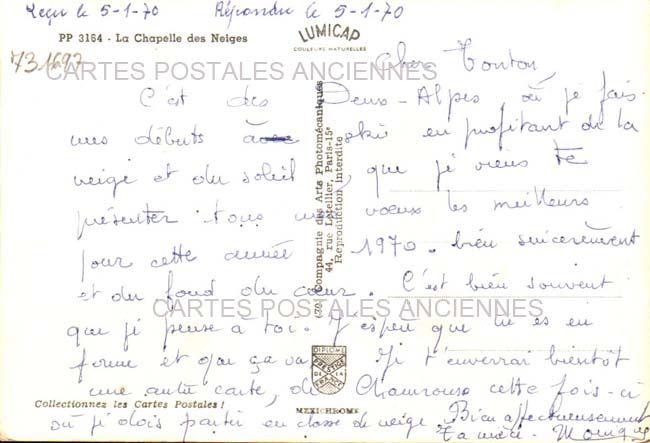 Reçu le 5-1-70 Répondu le 5-1-70
PP 3164 - La Chapelle des Neiges
LUMICAP
COULEURS NATURELLES
731697
CARTES POSTALES ANCIENNES
Cher Tonton,
C'est des Deux-Alpes où je fais
mes débuts à ski en profitant de la
neige et du soleil, que je viens te
présenter tous mes vœux les meilleurs
pour cette année 1970. bien sincèrement
et du fond du cœur. C'est bien souvent
CARTES POSTALES ANCIENNES
que je pense à toi. J'espère que tu es en
forme et que ça va. Je t'enverrai bientôt
une autre carte, de Chamrousse cette fois-ci
où je dois partir en classe de neige. Bien affectueusement
Ta nièce. Monique
(20) Compagnie des Arts Photomécaniques
44, rue Letellier, Paris-15e
Reproduction Interdite
DIPLOME
PRESTIGE
DE LA
FRANCE
MEXICHROME
Collectionnez les Cartes Postales !